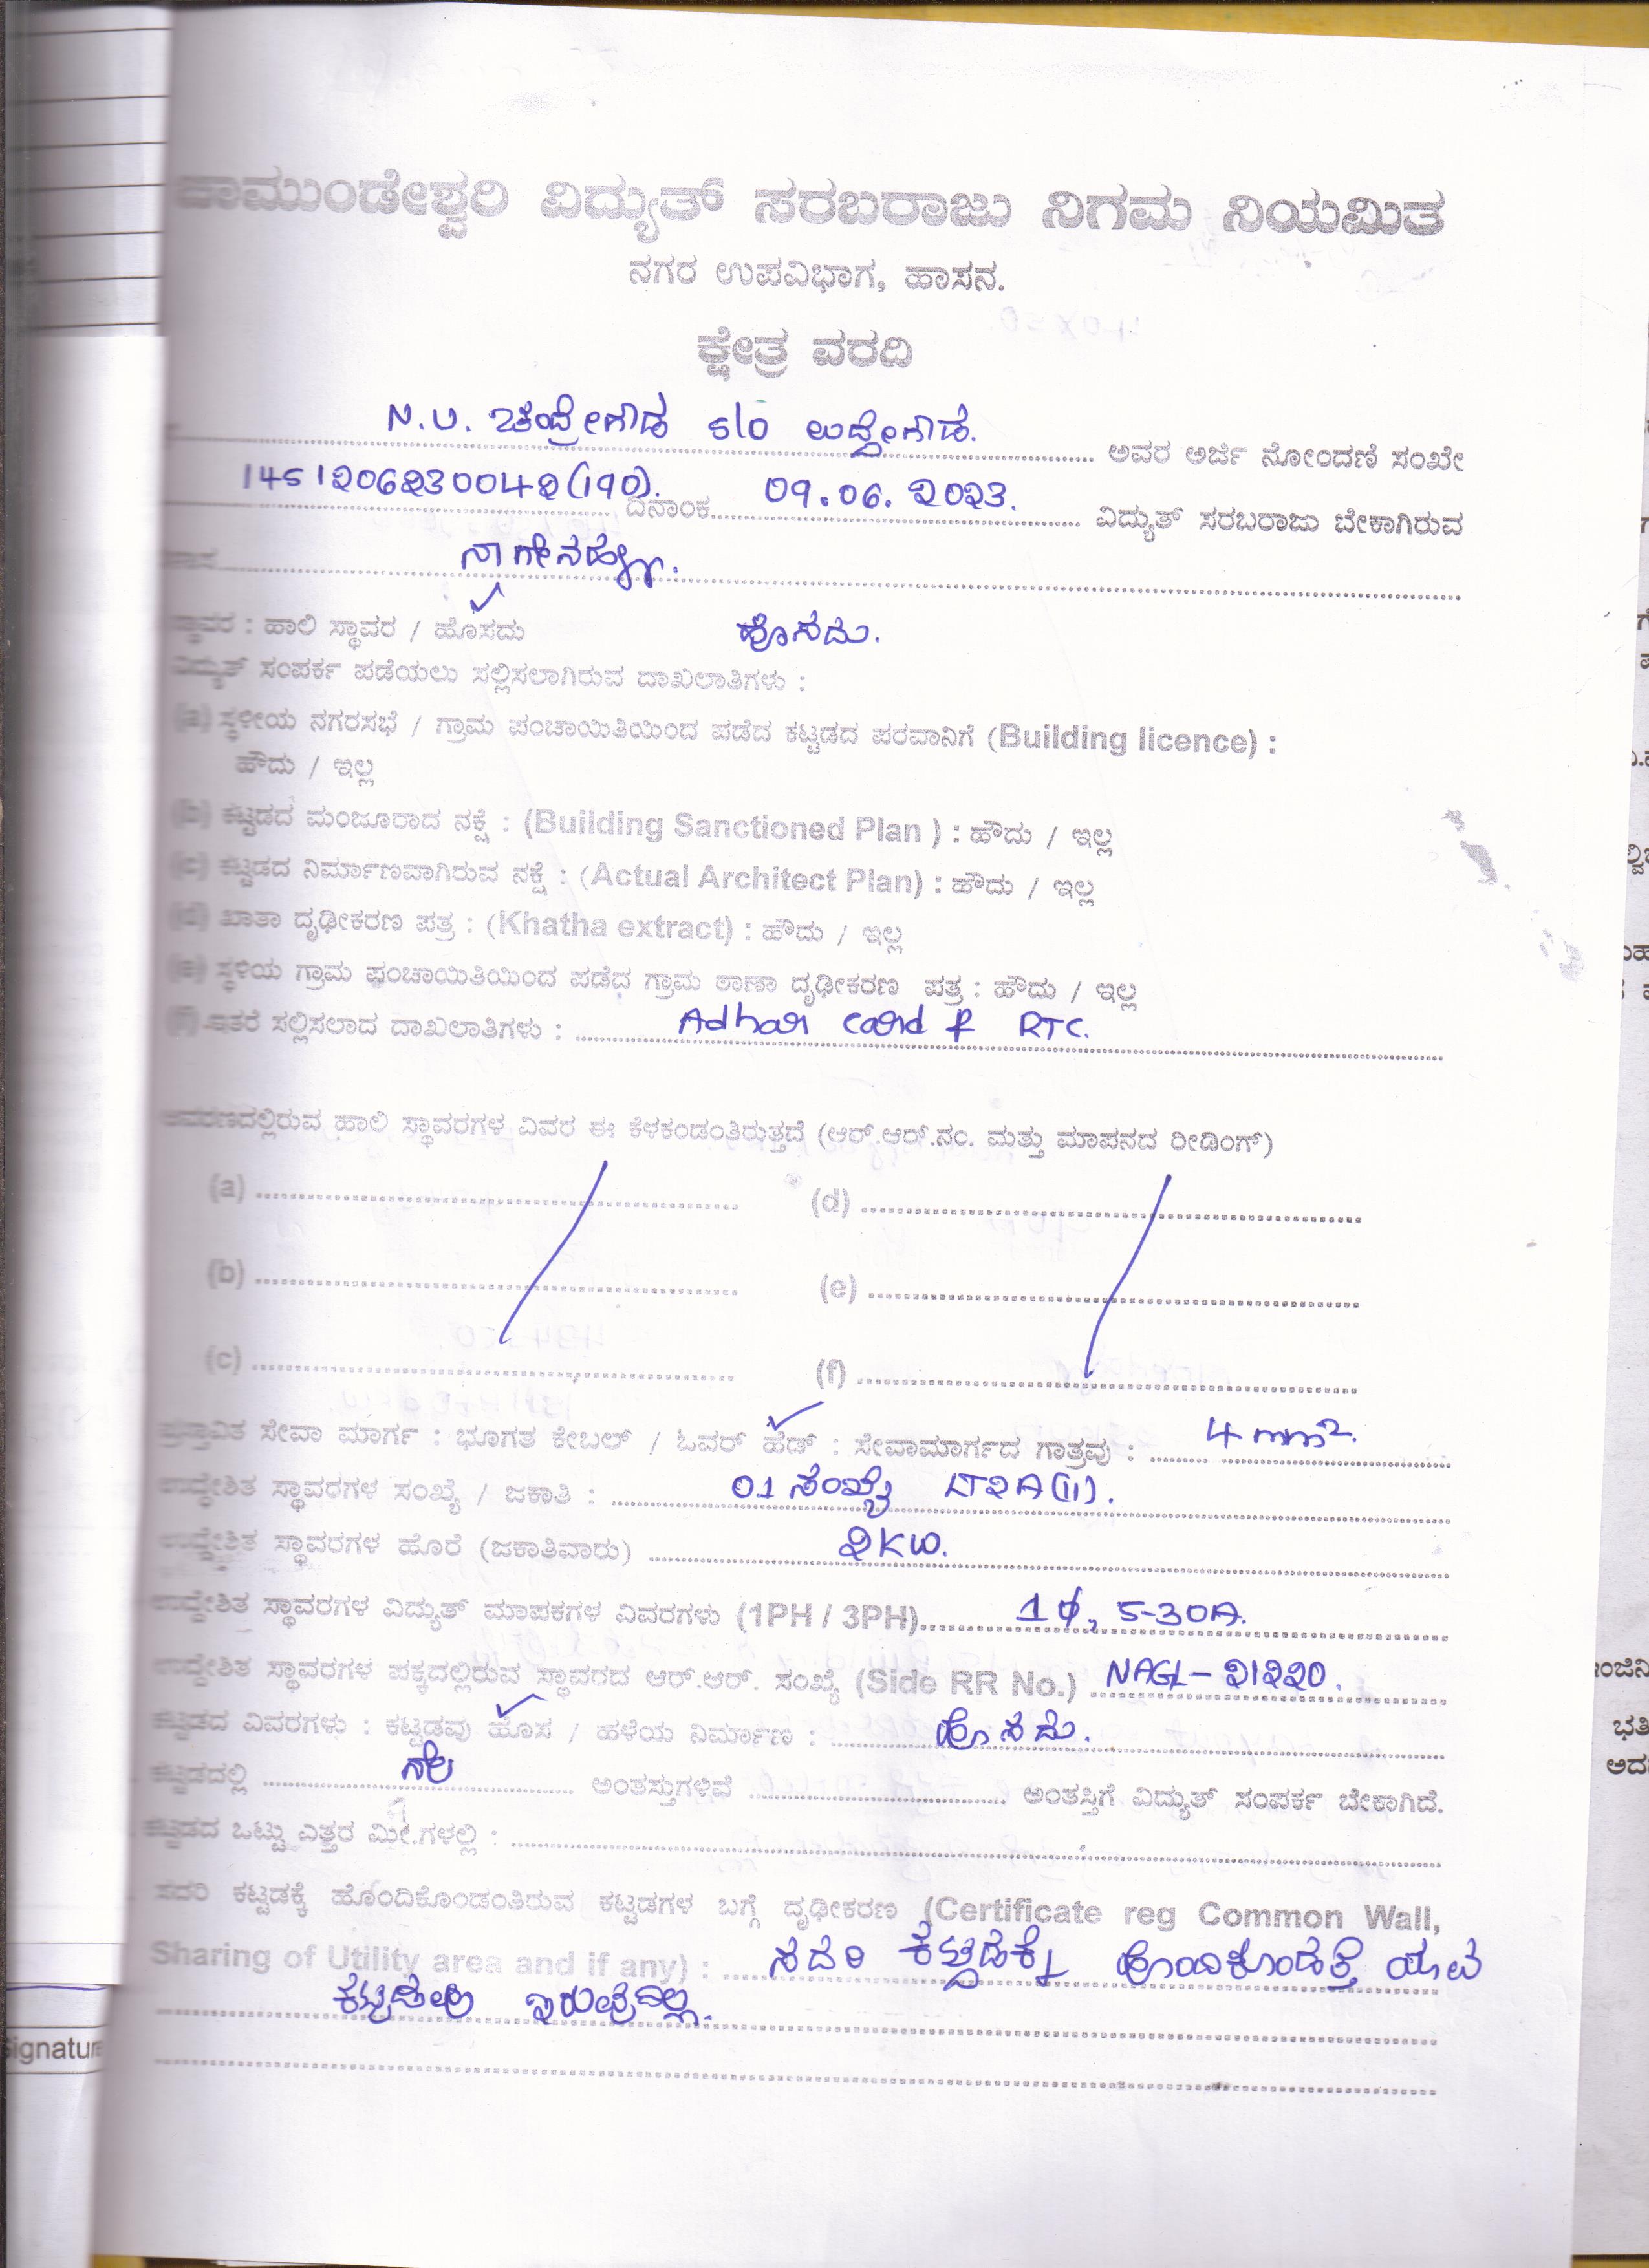 ಚಾಮುಂಡೇಶ್ವರಿ ವಿದ್ಯುತ್ ಸರಬರಾಜು ನಿಗಮ ನಿಯಮಿತ
ನಗರ ಉಪವಿಭಾಗ, ಹಾಸನ.
ಕ್ಷೇತ್ರ ವರದಿ
N.U. ಚಂದ್ರೇಗೌಡ S/o ಉದ್ದೇಗೌಡ. ಅವರ ಅರ್ಜಿ ನೋಂದಣಿ ಸಂಖೇ
1451206230042(190). ದಿನಾಂಕ 09.06.2023. ವಿದ್ಯುತ್ ಸರಬರಾಜು ಬೇಕಾಗಿರುವ
ನಾಗೇನಹಳ್ಳಿ.
ಸ್ಥಾವರ : ಹಾಲಿ ಸ್ಥಾವರ / ಹೊಸದು ಹೊಸದು.
ವಿದ್ಯುತ್ ಸಂಪರ್ಕ ಪಡೆಯಲು ಸಲ್ಲಿಸಲಾಗಿರುವ ದಾಖಲಾತಿಗಳು :
(a) ಸ್ಥಳೀಯ ನಗರಸಭೆ / ಗ್ರಾಮ ಪಂಚಾಯಿತಿಯಿಂದ ಪಡೆದ ಕಟ್ಟಡದ ಪರವಾನಿಗೆ (Building licence) :
ಹೌದು / ಇಲ್ಲ
(b) ಕಟ್ಟಡದ ಮಂಜೂರಾದ ನಕ್ಷೆ : (Building Sanctioned Plan ) : ಹೌದು / ಇಲ್ಲ
(c) ಕಟ್ಟಡದ ನಿರ್ಮಾಣವಾಗಿರುವ ನಕ್ಷೆ : (Actual Architect Plan) : ಹೌದು / ಇಲ್ಲ
(d) ಖಾತಾ ದೃಢೀಕರಣ ಪತ್ರ : (Khatha extract) : ಹೌದು / ಇಲ್ಲ
(e) ಸ್ಥಳಿಯ ಗ್ರಾಮ ಪಂಚಾಯಿತಿಯಿಂದ ಪಡೆದ ಗ್ರಾಮ ಠಾಣಾ ದೃಢೀಕರಣ ಪತ್ರ : ಹೌದು / ಇಲ್ಲ
(f) ಇತರೆ ಸಲ್ಲಿಸಲಾದ ದಾಖಲಾತಿಗಳು : Adhar card & RTC.
ಆವರಣದಲ್ಲಿರುವ ಹಾಲಿ ಸ್ಥಾವರಗಳ ವಿವರ ಈ ಕೆಳಕಂಡಂತಿರುತ್ತದೆ (ಆರ್.ಆರ್.ನಂ. ಮತ್ತು ಮಾಪನದ ರೀಡಿಂಗ್)
(a) (d)
(b) (e)
(c) (f)
ಪ್ರಸ್ತಾವಿತ ಸೇವಾ ಮಾರ್ಗ : ಭೂಗತ ಕೇಬಲ್ / ಓವರ್ ಹೆಡ್ : ಸೇವಾಮಾರ್ಗದ ಗಾತ್ರವು : 4mm².
ಉದ್ದೇಶಿತ ಸ್ಥಾವರಗಳ ಸಂಖ್ಯೆ / ಜಕಾತಿ : 01 ಸಂಖ್ಯೆ LT2A(ii).
ಉದ್ದೇಶಿತ ಸ್ಥಾವರಗಳ ಹೊರೆ (ಜಕಾತಿವಾರು) 2KW.
ಉದ್ದೇಶಿತ ಸ್ಥಾವರಗಳ ವಿದ್ಯುತ್ ಮಾಪಕಗಳ ವಿವರಗಳು (1PH / 3PH) 1ϕ, 5-30A.
ಉದ್ದೇಶಿತ ಸ್ಥಾವರಗಳ ಪಕ್ಕದಲ್ಲಿರುವ ಸ್ಥಾವರದ ಆರ್.ಆರ್. ಸಂಖ್ಯೆ (Side RR No.) NAGL-21220.
ಕಟ್ಟಡದ ವಿವರಗಳು : ಕಟ್ಟಡವು ಹೊಸ / ಹಳೆಯ ನಿರ್ಮಾಣ : ಹೊಸದು.
ಕಟ್ಟಡದಲ್ಲಿ ಅಂತಸ್ತುಗಳಿವೆ ಅಂತಸ್ತಿಗೆ ವಿದ್ಯುತ್ ಸಂಪರ್ಕ ಬೇಕಾಗಿದೆ.
ಕಟ್ಟಡದ ಒಟ್ಟು ಎತ್ತರ ಮೀ.ಗಳಲ್ಲಿ :
ಸದರಿ ಕಟ್ಟಡಕ್ಕೆ ಹೊಂದಿಕೊಂಡಂತಿರುವ ಕಟ್ಟಡಗಳ ಬಗ್ಗೆ ದೃಢೀಕರಣ (Certificate reg Common Wall,
Sharing of Utility area and if any) : ಸದರಿ ಕಟ್ಟಡಕ್ಕೆ ಹೊಂದಿಕೊಂಡತ್ತೆ ಯಾವ
ಇರುವುದಿಲ್ಲ.
Signature